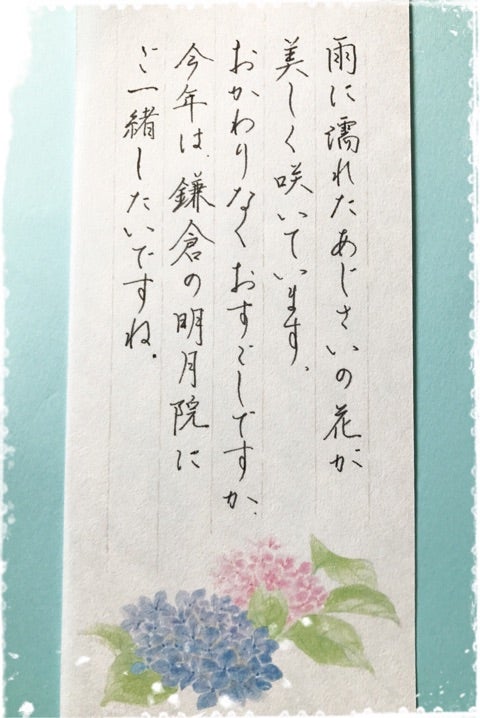 雨に濡れたあじさいの花が
美しく咲いています。
おかわりなくおすごしですか。
今年は、鎌倉の明月院に
ご一緒したいですね。